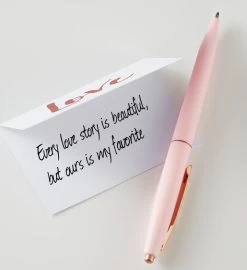 Love
Every love story is beautiful,
but ours is my favorite